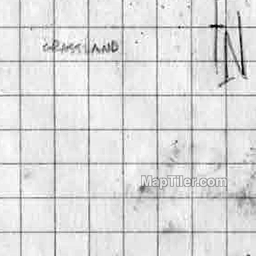 GRASSLAND
N
MapTiler.com